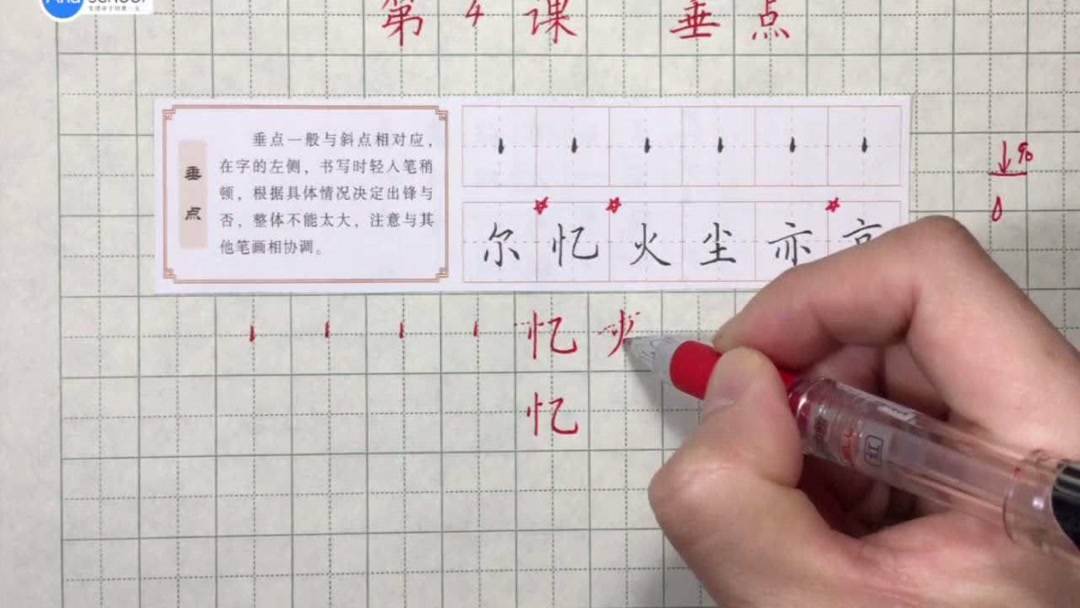 SCHOOL
第4课 垂点
垂点
垂点一般与斜点相对应,
在字的左侧,书写时轻人笔稍
顿,根据具体情况决定出锋与
否,整体不能太大,注意与其
他笔画相协调。
尔 忆 火 尘 亦
忆
忆